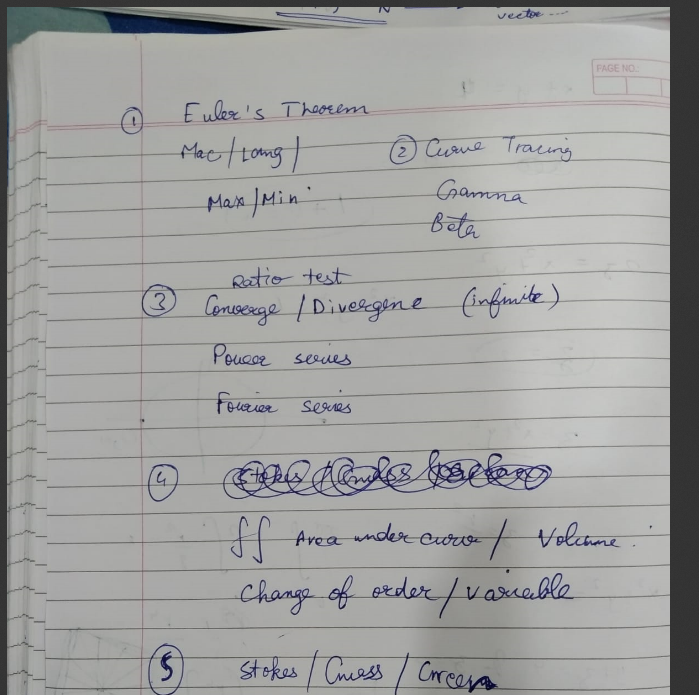 N
vector
PAGE NO.:
① Euler's Theorem
Mac / Lang /
Max / Min
② Curve Tracing
Gamma
Beta
Ratio test
③ Converge / Divergene (infinite)
Power series
Fourier series
④
∫∫ Area under curve / Volume.
Change of order / Variable
⑤ Stokes / Guess / Green